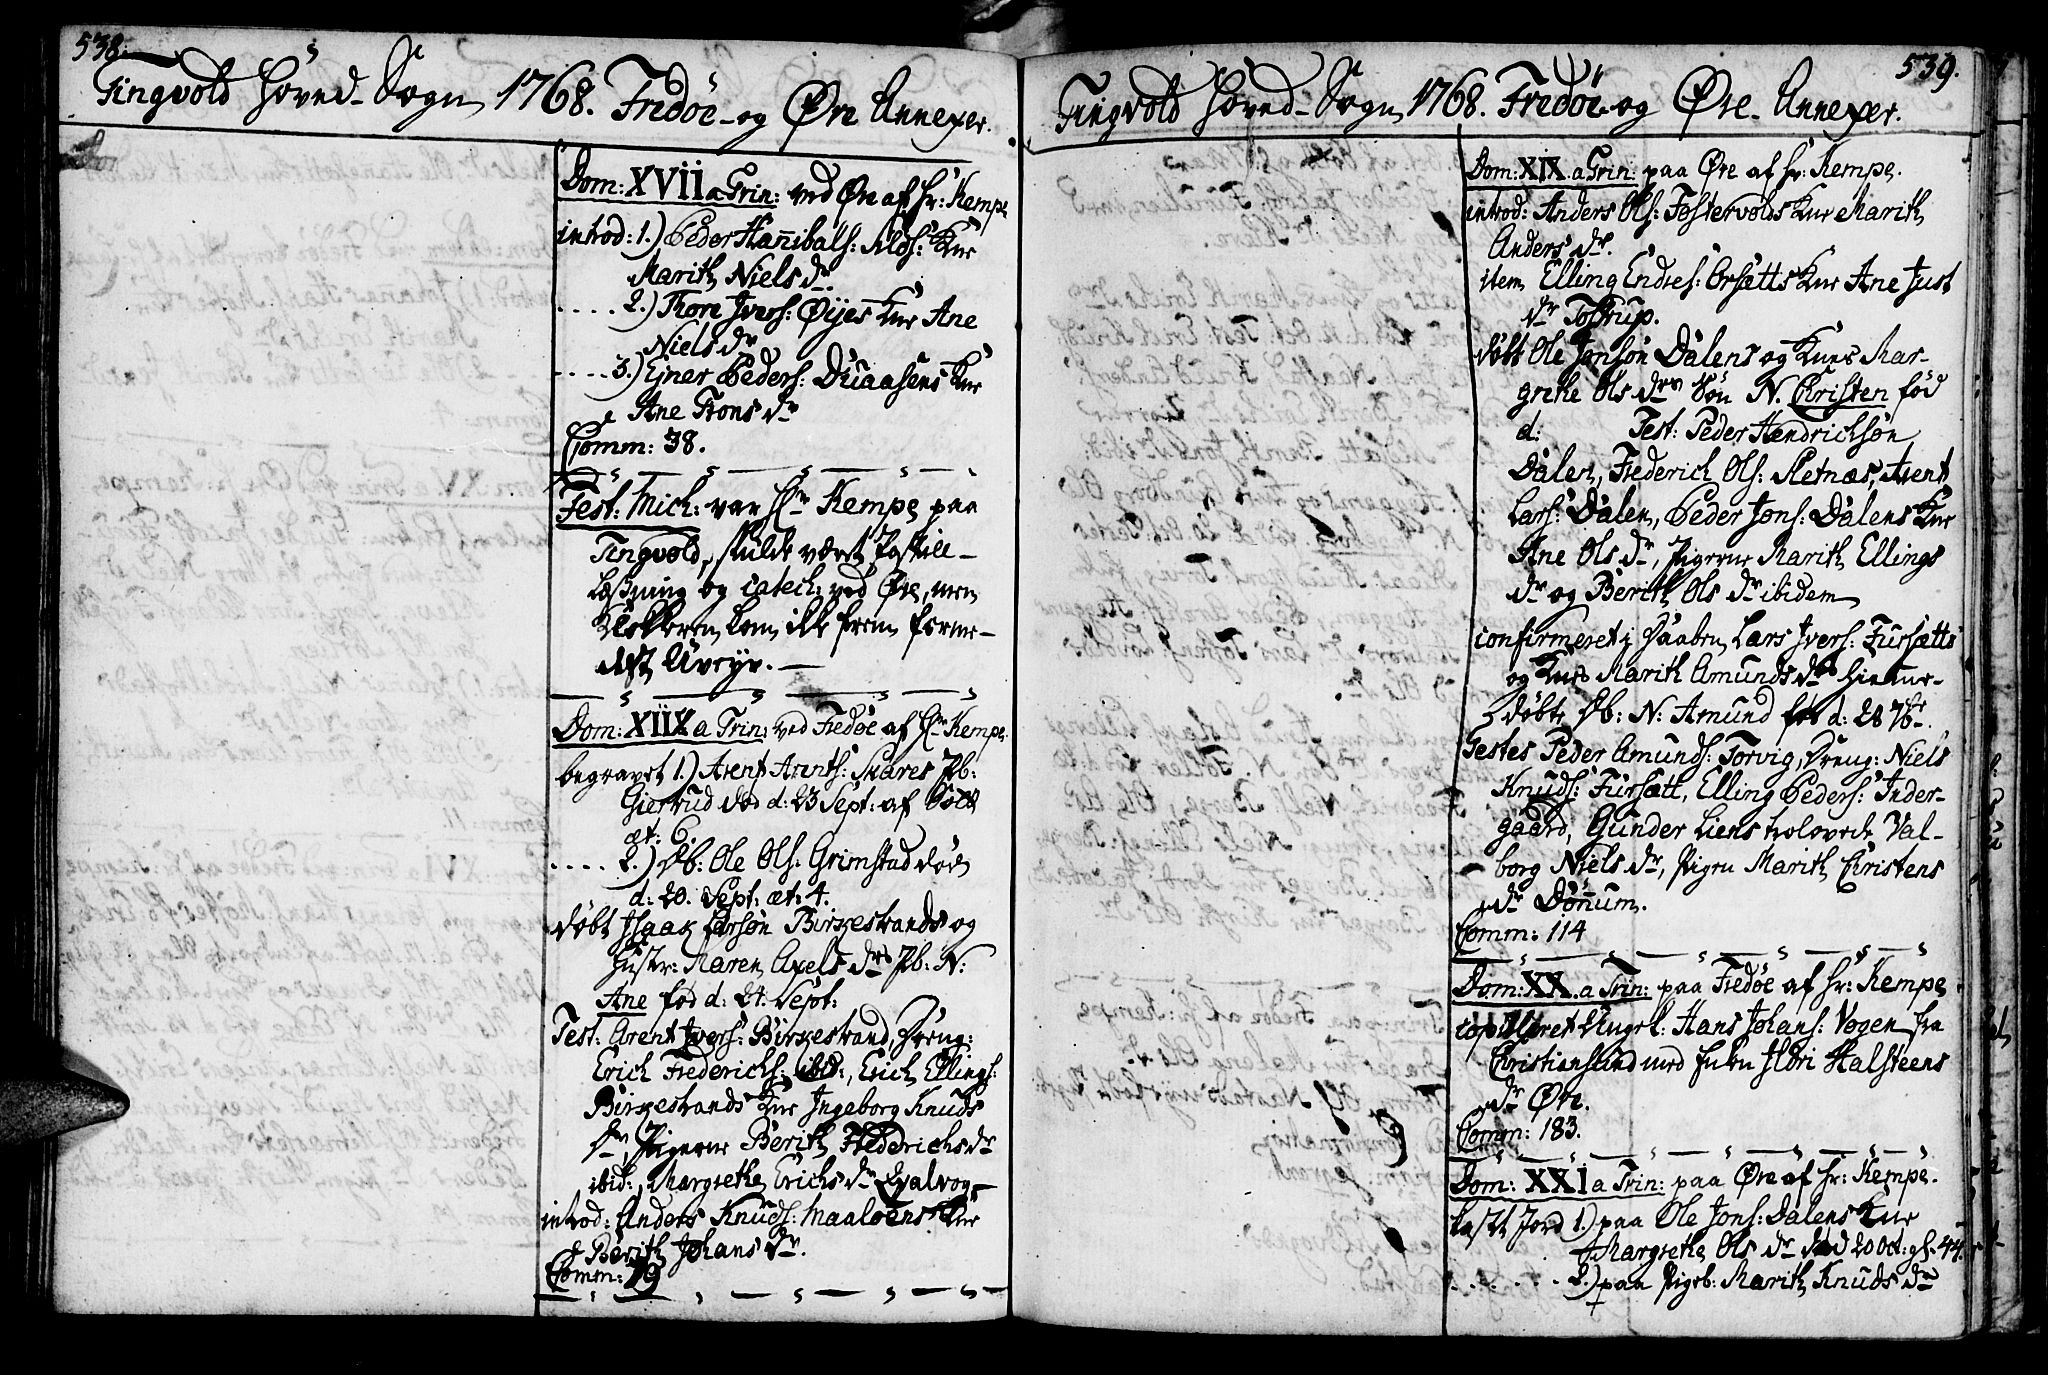 538.
Tingvold Hoved-Sogn 1768. Fredöe- og Øre Annexer.
Dom: XVII a Trin: ved Øre af Hr: Kempe
introd: 1.) Peder Hannibals: Alds: Kne
Marith Niels dr.
.... 2.) Thore Ivers: Øijes Kne Ane
Niels dr
.... 3.) Ejner Peders: Duaasens Kne
Ane Trons dr
Comm: 38.
Fest: Mich: var Hr Kempe paa
Tingvold, skulde været Postill-
Læsning og catech: ved Øre, men
Klokkeren kom ikke frem forme-
delst Uveyr. —
Dom: XIIX a Trin: ved Fredöe af Hr Kempe.
begravet 1.) Arent Arnts: Skares Pb:
Giertrud död d: 23 Sept: af
æt: 6.
.... 2.) Db: Ole Ols: Grimstad döde
d: 20. Sept: æt: 4.
döbt Isaak Larsön Birkestrands og
Hustr: Maren Axels drs Pb: N:
Ane föd d: 21. Sept:
Test: Arent Ivers: Birkestrand, Dreng:
Erich Frederichs: ibid:, Erich Ellings:
Birkestrands Kne Ingeborg Knuds
dr, Pigerne Berith Frederichs dr
ibid:, Margrethe Erichs dr Qvalvog
introd: Anders Knuds: Maalöens Kne
Berith Johans dr.
Comm: 79
539.
Tingvold Hoved-Sogn 1768. Fredöe og Øre- Annexer.
Dom: XIX. a Trin: paa Øre af Hr: Kempe.
introd: Anders Ols: Fostervolds Kne Marith
Anders dr.
item Elling Endres: Orsætts Kne Ane Just
dr Tostrup.
döbt Ole Jonsön Dalens og Knes Mar-
grethe Ols drs Sön N. Christen föd
d: Test: Peder Hendrichsön
Dalen, Frederich Ols: Sletnæs, Arent
Lars: Dalen, Peder Jons: Dalens Kne
Ane Ols dr, Pigerne Marith Ellings
dr og Berith Ols dr ibidem
confirmeret i Daaben Lars Ivers: Fursætts
og Knes Marith Amunds drs hiemme-
döbte Db: N: Amund föd d: 28 7br.
Testes Peder Amunds: Torvig, Dreng: Niels
Knuds: Fursætt, Elling Peders: Inder-
gaard, Gunder Liens trolovede Val-
borg Niels dr, Pigen Marith Christens
dr Dönnum.
Comm: 114
Dom: XX. a Trin: paa Fredöe af Hr: Kempe
copuleret Ungk: Hans Johans: Vogen fra
Christiansund med Enken Ildri Halsteens
dr Øre.
Comm: 183.
Dom: XXI a Trin: paa Øre af Hr: Kempe.
kast Jord 1.) paa Ole Jons: Dalens Kne
Margrethe Ols dr död 20 Oct: gl. 44.
.... 2.) paa Pigeb: Marith Knuds dr